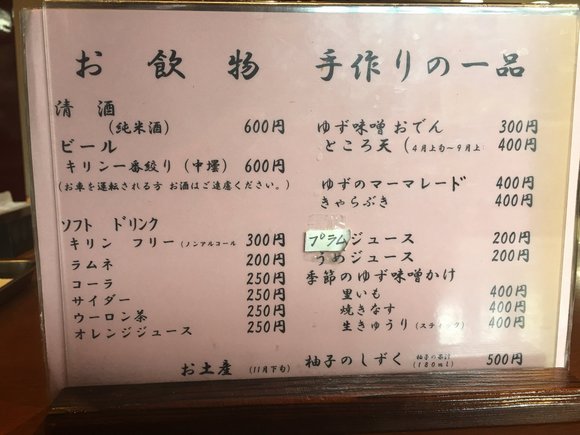 お飲物
清酒
(純米酒) 600円
ビール
キリン一番絞り (中壜) 600円
(お車を運転される方 お酒はご遠慮ください。)
ソフト ドリンク
キリン フリー (ノンアルコール 300円
ラムネ 200円
コーラ 250円
サイダー 250円
ウーロン茶 250円
オレンジジュース 250円
手作りの一品
ゆず味噌おでん 300円
ところ天 (4月上旬〜9月上 400円
ゆずのマーマレード 400円
きゃらぶき 400円
プラムジュース 200円
うめジュース 200円
季節のゆず味噌かけ
里いも 400円
焼きなす 400円
生きゅうり (スティック) 400円
お土産 (11月下旬) 柚子のしずく 柚子の果汁 (180ml) 500円